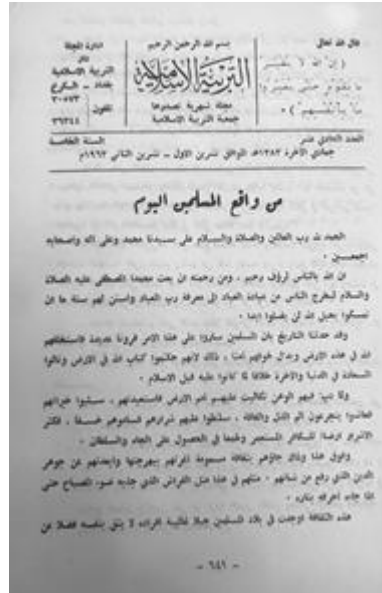 قال الله تعالى
(إن الله لا يغير
ما بقوم حتى يغيروا
ما بأنفسهم)
بسم الله الرحمن الرحيم
التربية الإسلامية
مجلة شهرية تصدرها
جمعية التربية الاسلامية
ادارة المجلة
التربية الاسلامية
بغداد - الكرخ
٣٠٥٧٣
تلفون
٣٦٣٤٤
العدد الحادي عشر
السنة الخامسة
جمادي الآخرة ١٣٨٣هـ الموافق تشرين الاول - تشرين الثاني ١٩٦٣م
من واقع المسلمين اليوم
الحمد لله رب العالمين والصلاة والسلام على سيدنا محمد وعلى آله واصحابه
اجمعين .
ان الله بالناس لرؤف رحيم ، ومن رحمته ان بعث محمدا المصطفى عليه الصلاة
والسلام ليخرج الناس من عبادة العباد الى معرفة رب العباد واسس لهم سنة ما ان
تمسكوا بحبل الله لن يضلوا ابدا .
وقد حدثنا التاريخ بان المسلمين ساروا على هذا الامر قرونا عديدة فاستخلفهم
الله في هذه الارض وبدل خوفهم امنا ، ذلك لانهم حكموا كتاب الله في الارض ونالوا
السعادة في الدنيا والآخرة خلافا لما كانوا عليه قبل الاسلام .
ولما دب فيهم الوهن تكالبت عليهم امم الارض فاستعبدتهم ، سلبوا خيراتهم
فعاشوا يتجرعون الم الذل والفاقة ، سلطوا عليهم شرارهم فساموهم خسفا ، فكثر
الاشرار ارضاء للكافر المستعمر وطمعا في الحصول على الجاه والسلطان .
وفوق هذا وذاك جاؤهم بثقافة مسمومة اغرتهم ببهرجتها وابعدتهم عن جوهر
الدين الذي رفع من شأنهم ، مثلهم في هذا مثل الفراش الذي جذبه ضوء المصباح حتى
اذا جاءه احرقه بناره .
هذه الثقافة اوجدت في بلاد المسلمين جيلا غالبية افراده لا يثق بنفسه فضلا عن
- ٦٤١ -